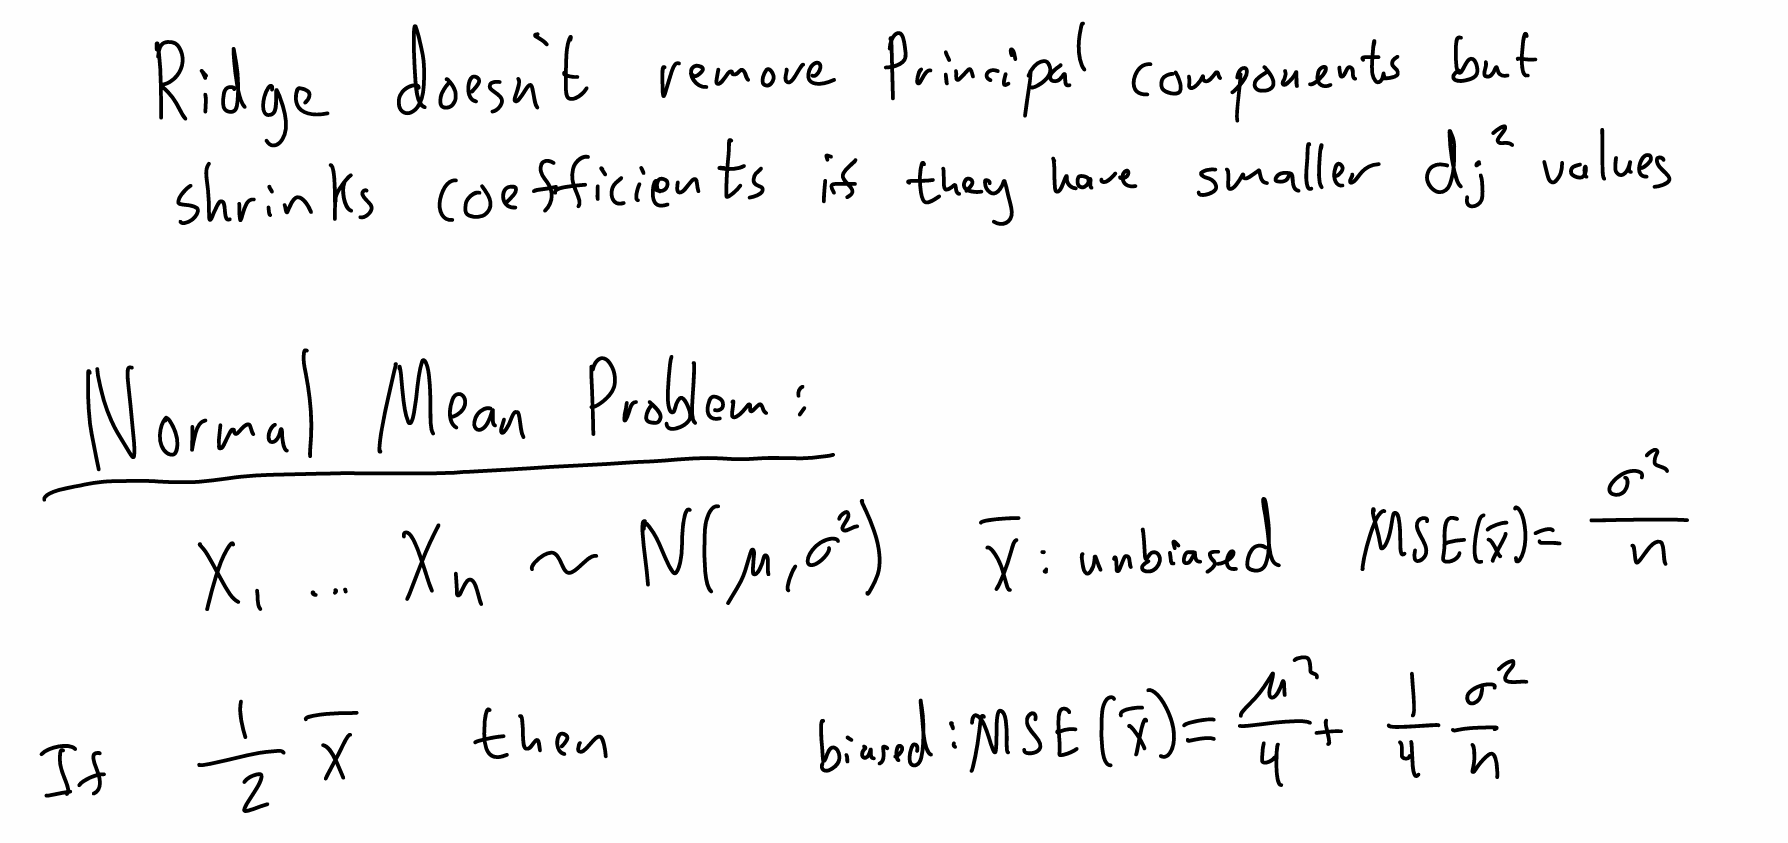 Ridge doesn't remove Principal components but
shrinks coefficients if they have smaller dj² values
Normal Mean Problem:
X₁ ... Xₙ ~ N(μ,σ²) X̄: unbiased MSE(x̄)= σ²/n
If 1/2 X̄ then biased: MSE(x̄)= μ²/4 + 1/4 σ²/n